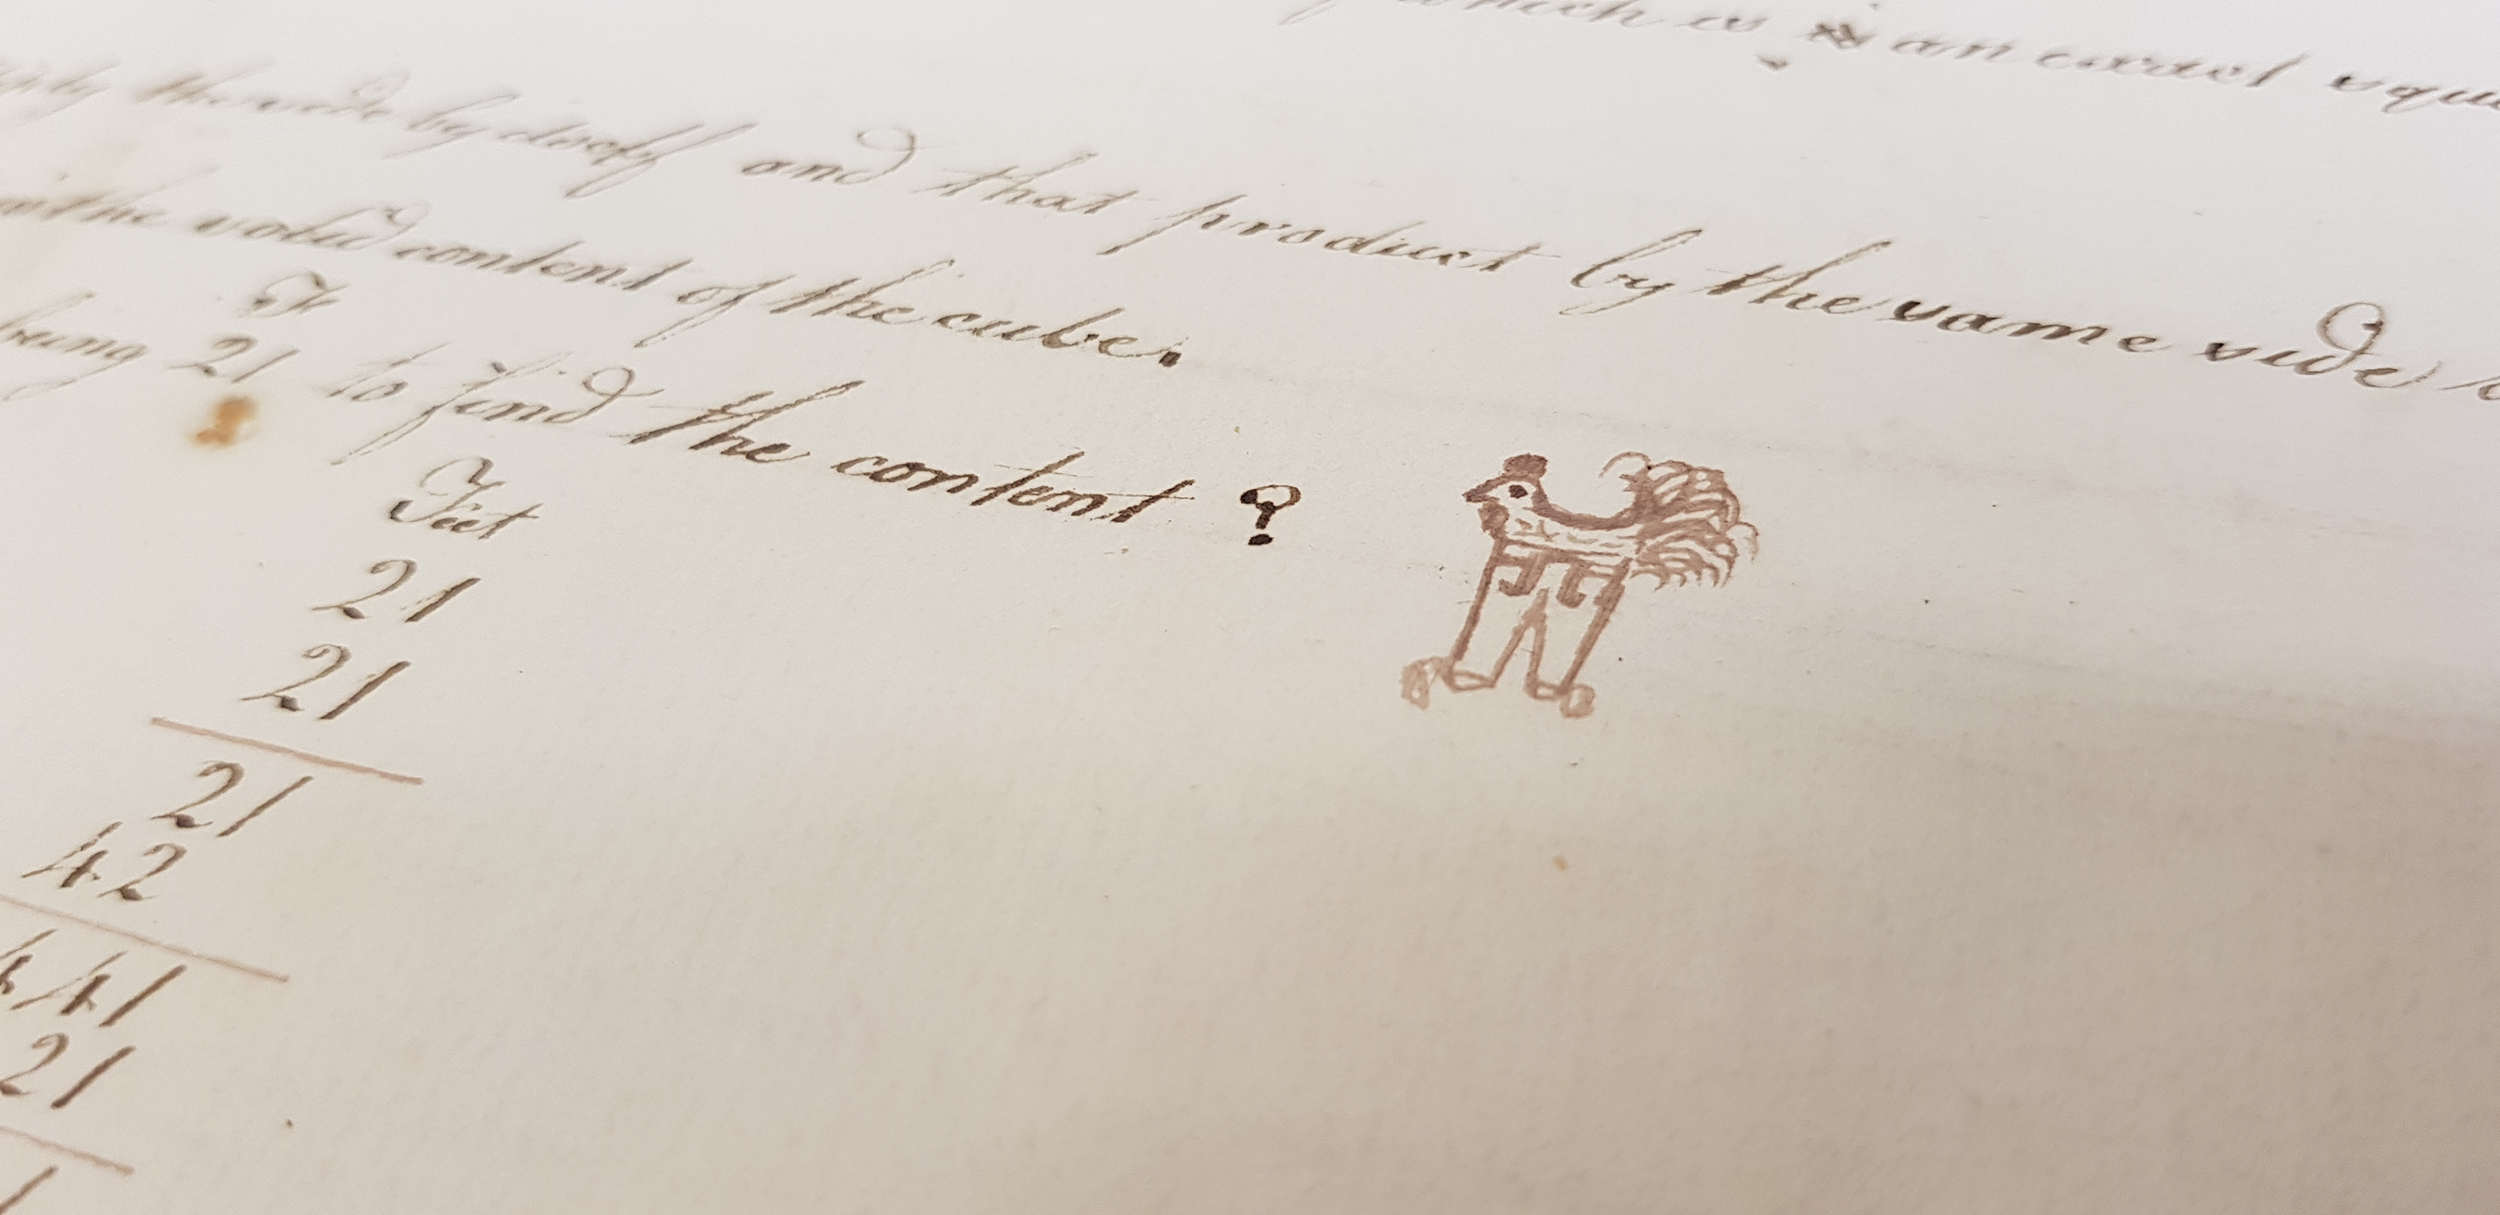 which is an exact squ
ply the side by itself and that product by the same side
the solid content of the cube.
Ft
being 21 to find the content ?
Feet
21
21
21
42
441
21
1